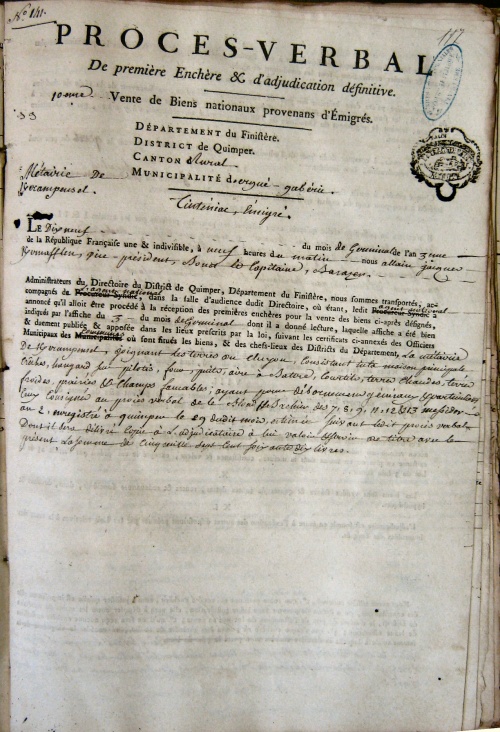 N.º 141.
117
PROCES-VERBAL
De première Enchère & d'adjudication définitive.
Vente de Biens nationaux provenans d'Émigrés.
DÉPARTEMENT du Finistère.
DISTRICT de Quimper.
CANTON Rural
MUNICIPALITÉ d'ergué-gabéric
Métairie De
Kveampensel.
Tinténiac, émigré.
LE Dixneuf du mois de Germinal de l'an 3me
de la République Française une & indivisible, à neuf heures du matin nous allain jacques
Kernafflen, que président, Bonet Le Capitaine,
Administrateurs du Directoire du District de Quimper, Département du Finistère, nous sommes transportés, ac-
compagnés de l'agent national Procureur-Syndic, dans la salle d'audience dudit Directoire, où étant, ledit agent national Procureur-Syndic a
annoncé qu'il alloit être procédé à la réception des premières enchères pour la vente des biens ci-après désignés,
indiqués par l'affiche du 3 du mois de Germinal dont il a donné lecture, laquelle affiche a été bien
& duement publiée & apposée dans les lieux prescrits par la loi, suivant les certificats ci-annexés des Officiers
Municipaux des Communes Municipalités où sont situés les biens, & des chefs-lieux des Districts du Département, La métairie
De joignant les terres du consistant en maison principale,
Crêches, hangard sur pilotis, four, puits, aire à Battre, courtils, terres chaudes, terres
froides, prairies & Champs fauchables; ayant pour débornemens généraux & particuliers
Ceux Consignés au procès verbal de des 7, 8, 9, 11, 12 & 13 messidor
an 2, enregistré à quimper le 29 dudit mois, estimée suivant ledit procès verbal
Dont il sera délivré copie à L'adjudicataire à lui valoir & servir de titre avec le
présent La somme de Cinq mille sept cent soixante dix livres.